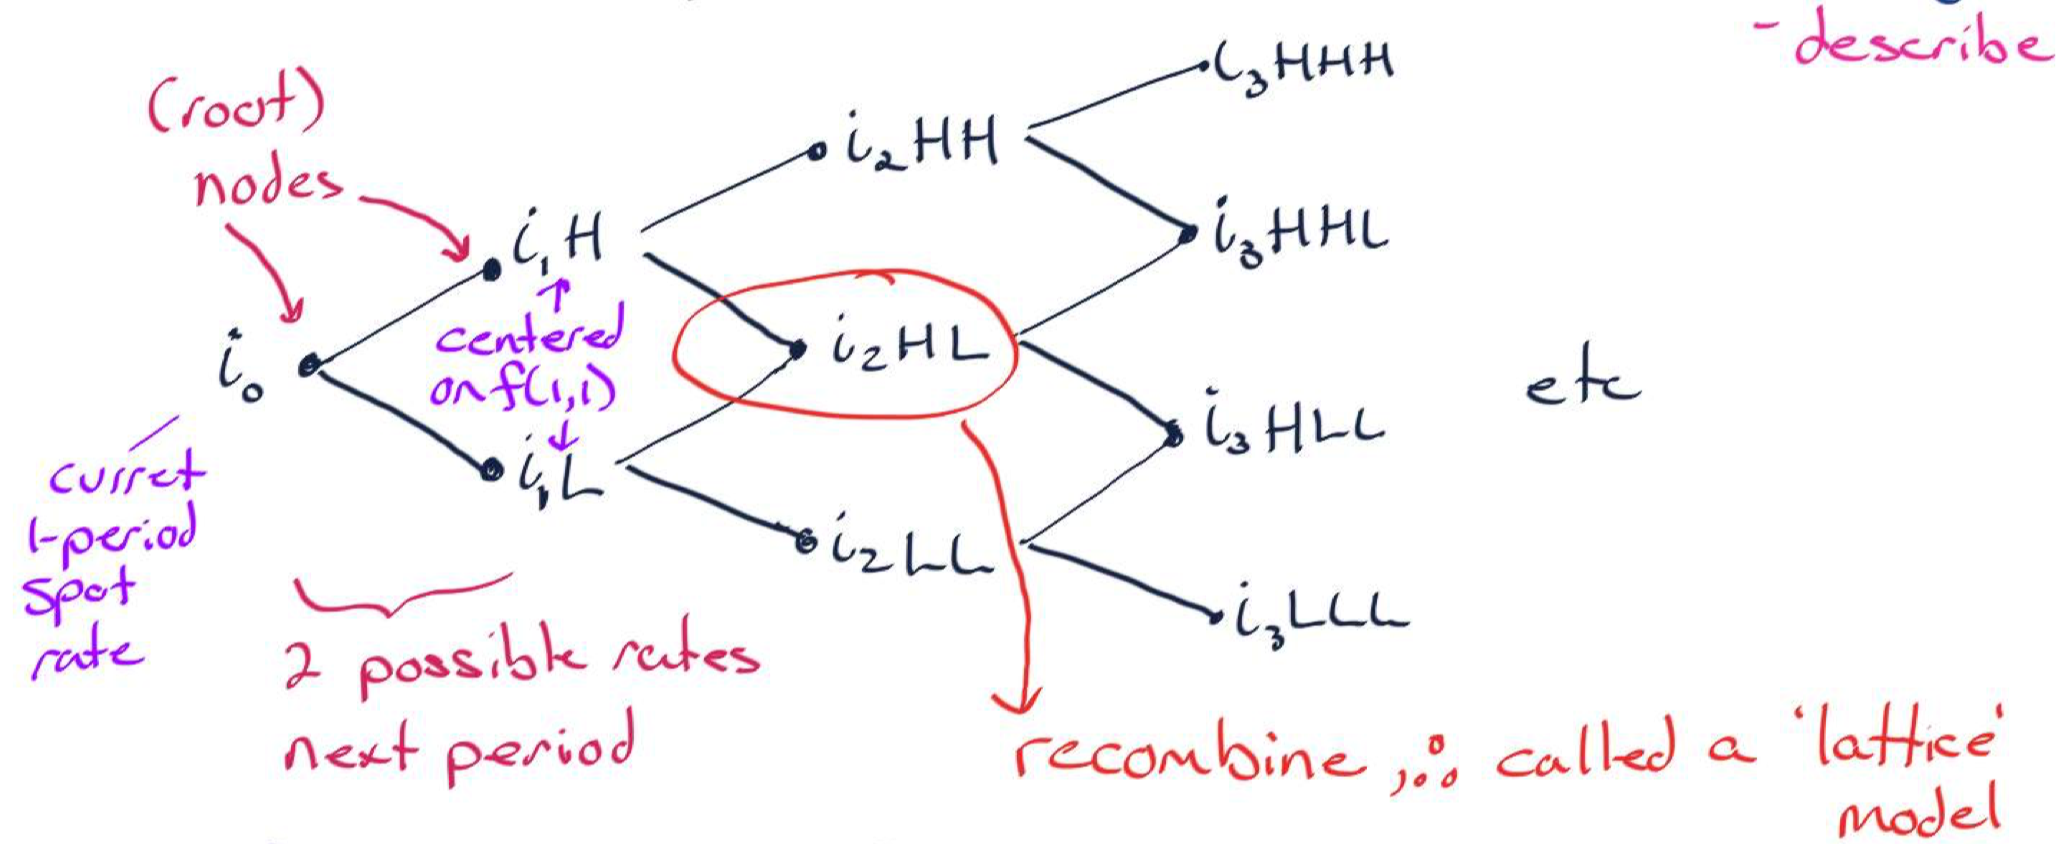 - describe
(root)
nodes
i₀
curret
1-period
spot
rate
i₁H
↑
centered
on f(1,1)
↓
i₁L
2 possible rates
next period
i₂HH
i₂HL
i₂LL
i₃HHH
i₃HHL
i₃HLL
i₃LLL
etc
recombine, ∴ called a 'lattice'
model